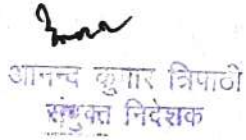 आनन्द कुमार त्रिपाठी
संयुक्त निदेशक